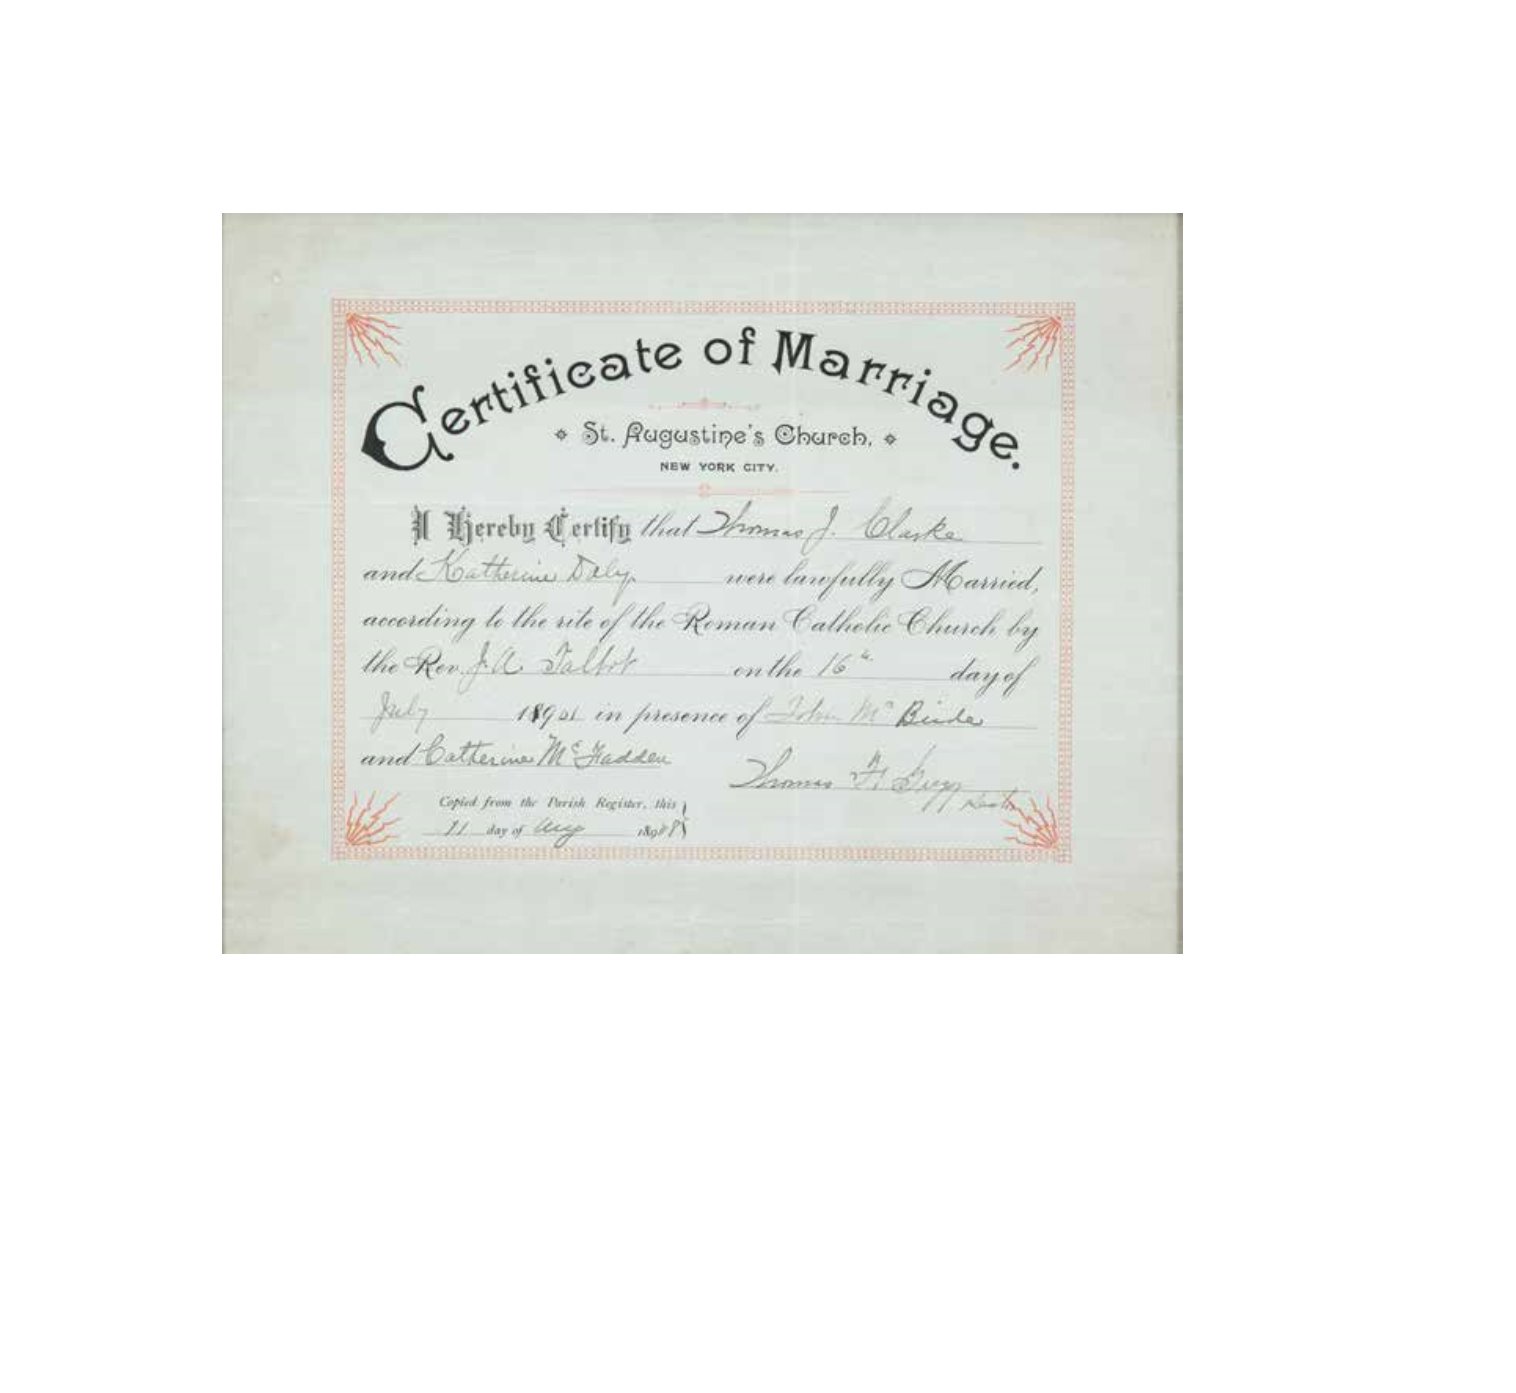 Certificate of Marriage.
St. Augustine's Church,
NEW YORK CITY.
I Hereby Certify that Thomas J. Clarke
and Katherine Daly were lawfully Married,
according to the rite of the Roman Catholic Church by
the Rev. J. A. Talbot on the 16th day of
July 1901 in presence of John Mc Bride
and Catherine McFadden
Thomas F. Gregg
Rector
Copied from the Parish Register, this
11 day of Aug 189